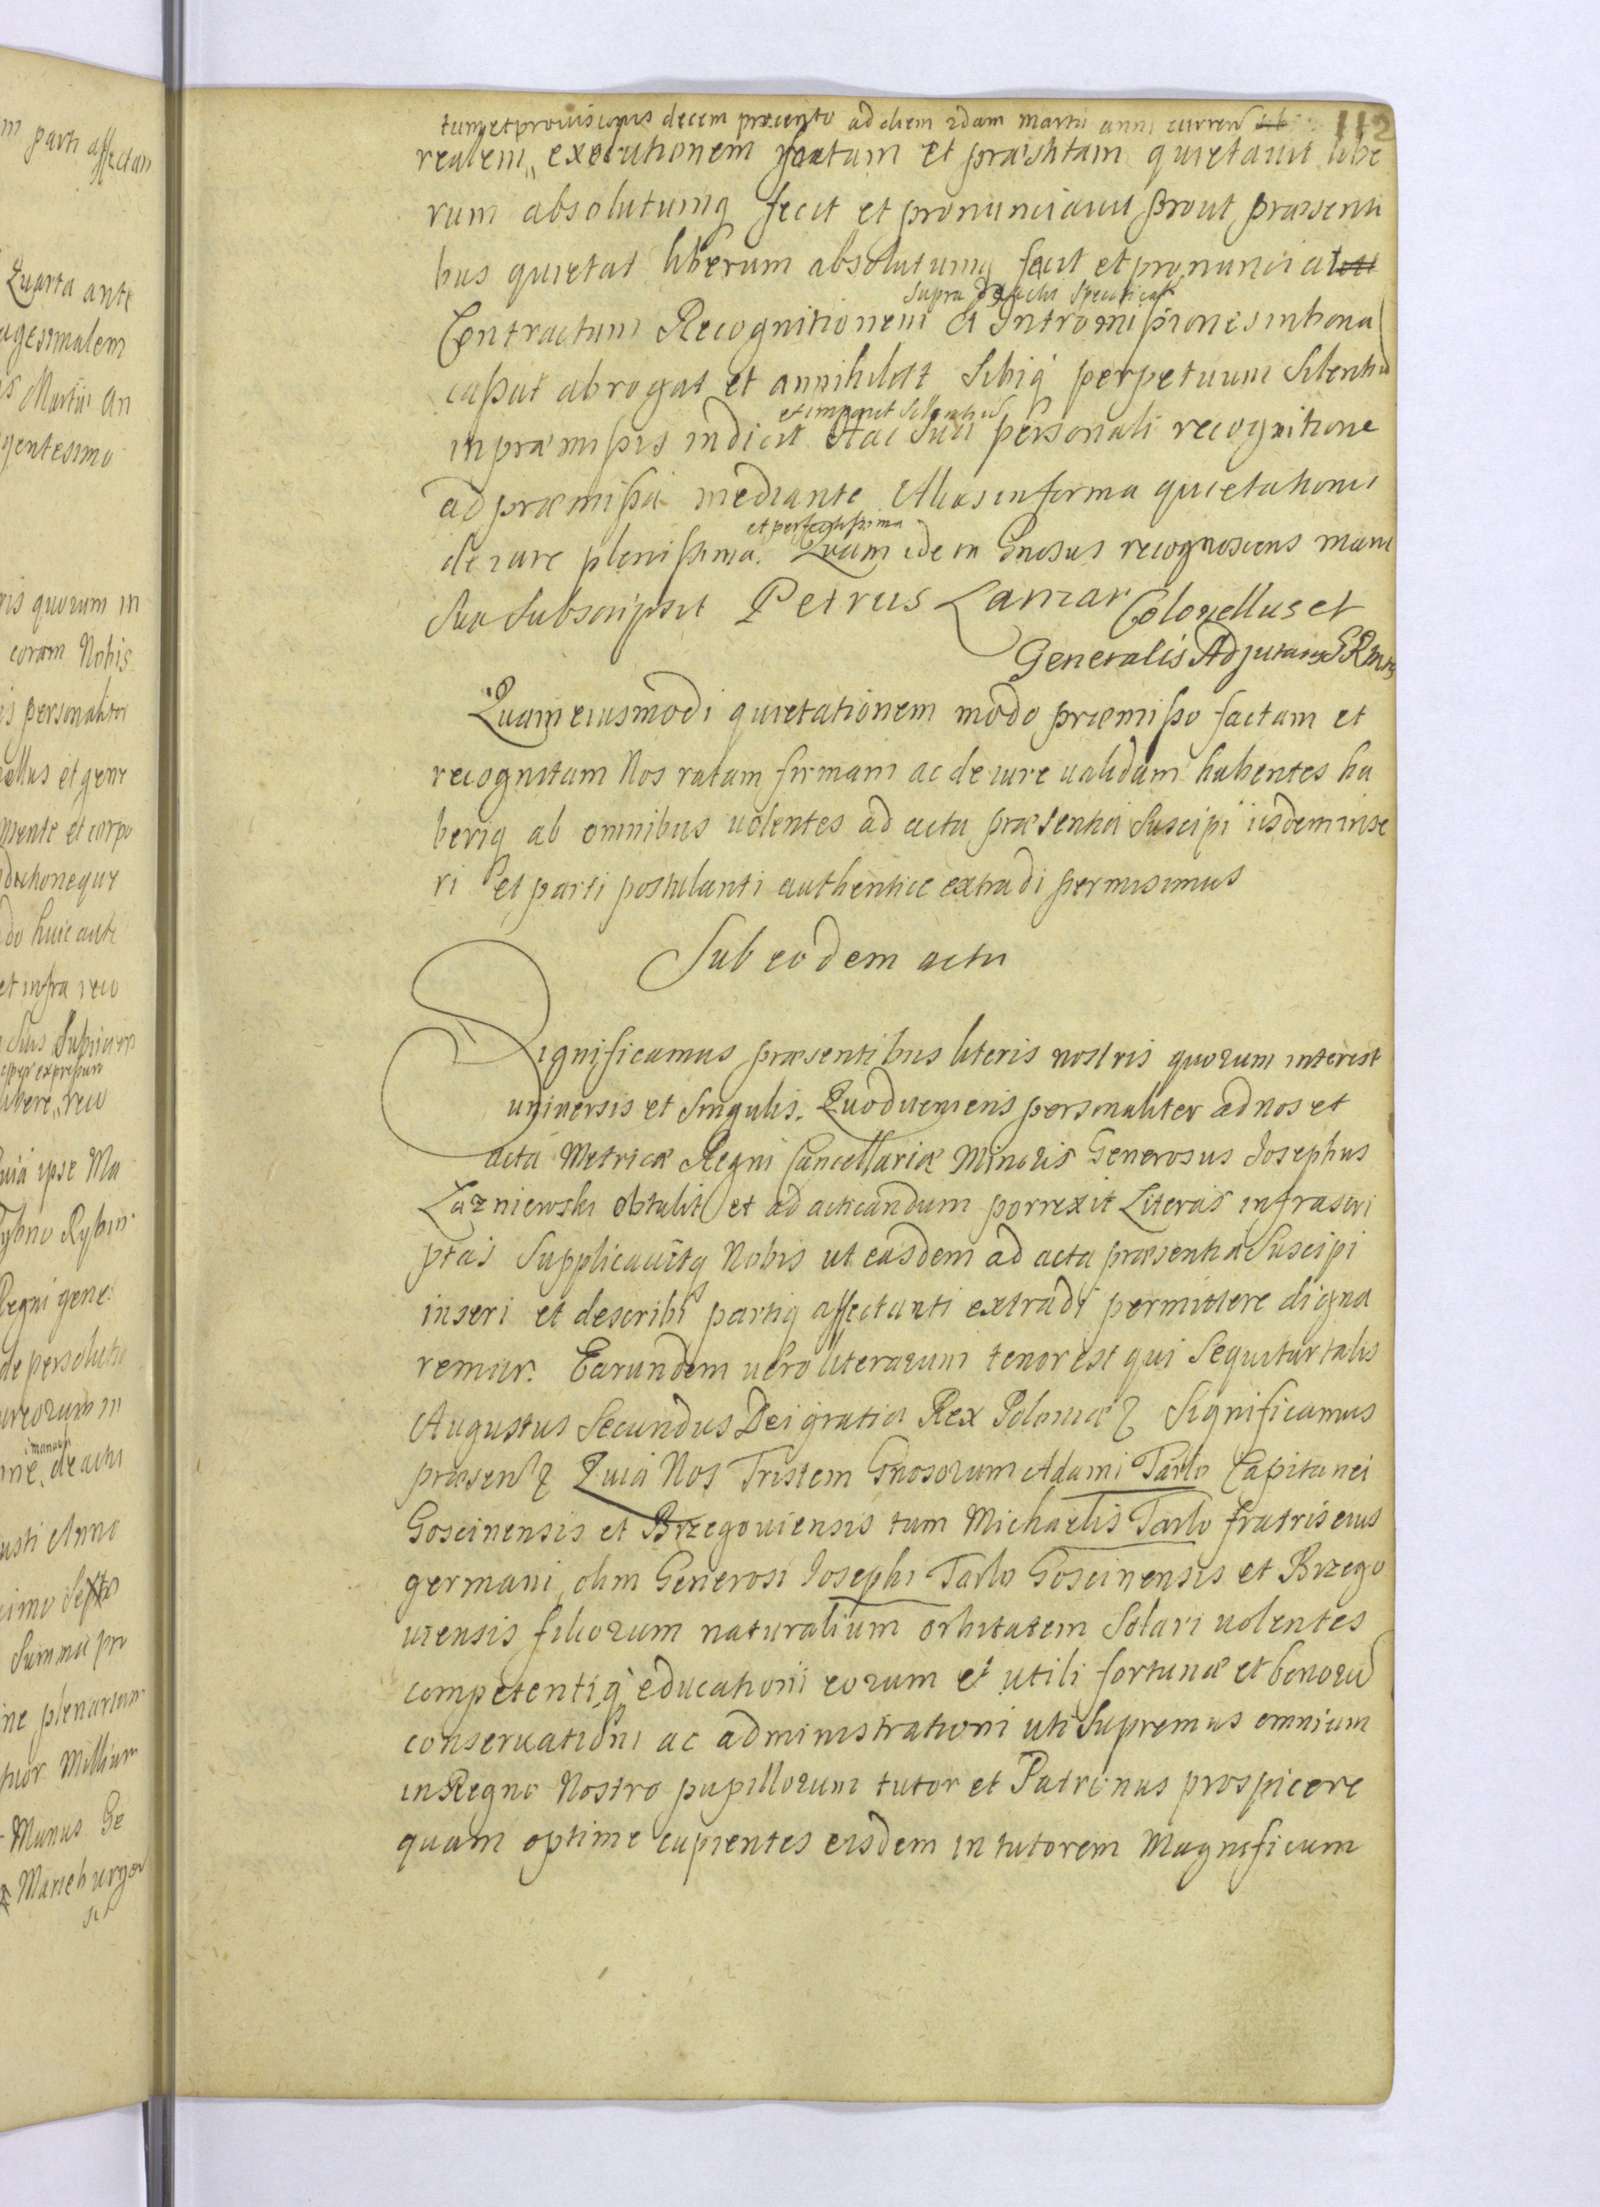 112
tum et provisionis decem pro cento ad diem 2dam Martii anni curren
realem,, executionem factam et præstitam quietavit libe
rum absolutumq fecit et pronunciavit prout præsenti
bus quietat liberum absolutumq facit et pronunciat
supra de actis specificat
Contractum Recognitionem et Intromissiones in bona
cassat abrogat et annihilat Sibiq perpetuum silentiu
et imponit silentiu
in præmissis indicit Hac Sua personali recognitione
ad præmissa mediante Alias in forma quietationis
et perfectissima
de iure plenissima. Quam idem Gnosus recognoscens manu
sua Subscripsit Petrus Lanzar Colonellus et
Generalis Adjutans SRMtis
Quam eiusmodi quietationem modo præmisso factam et
recognitam Nos ratam firmam ac de iure validam habentes ha
beriq ab omnibus volentes ad acta præsentia Suscipi iisdem inse
ri et parti postulanti authentice extradi permisimus
Sub eodem actu
Significamus præsentibus literis nostris quorum interest
universis et Singulis. Quod veniens personaliter ad nos et
acta Metricæ Regni Cancellariæ Minoris Generosus Josephus
Łazniewski obtulit et ad acticandum porrexit Literas infrascri
ptas Supplicavitq Nobis ut easdem ad acta præsentia Suscipi
inseri et describi partiq affectanti extradi permittere digna
remur. Earundem vero literarum tenor est qui Sequitur talis
Augustus Secundus Dei gratia Rex Poloniæ Significamus
præsen Quia Nos Tristem Gnosorum Adami Tarlo Capitanei
Goscinensis et Brzegoviensis tum Michaelis Tarlo fratris eius
germani olim Generosi Josephi Tarlo Goscinensis et Brzego
viensis filiorum naturalium orbitatem Solari volentes
competentiq educationi eorum et utili fortunæ et bonoru
conservationi ac administrationi uti Supremus omnium
in Regno Nostro pupillorum tutor et Patronus prospicere
quam optime cupientes eisdem in tutorem Magnificum
m parti affectan
Quarta ante
agesimalem
is Martii An
gentesimo
ris quorum in
coram Nobis
is personaliter
ellus et gene
mente et corpo
do huic acti
et infra reco
expressum
libere,, reco
uia ipse Ma
Rybin
Regni gene
de persoluta
ureorum in
de actu
usti Anno
cimo Septo
Summa pro
ne plenariam
tuor Millium
Munus Ge
Marieburgen